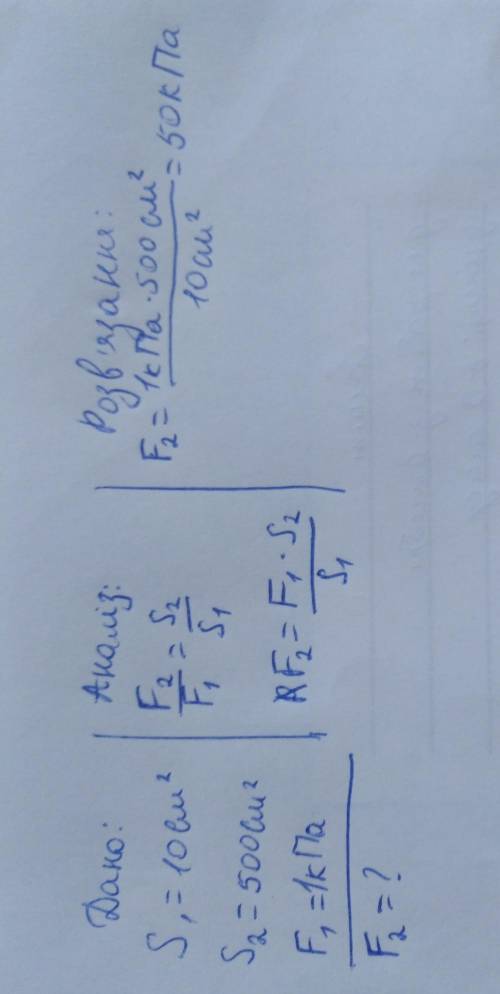 Дано:
S₁ = 10 см²
S₂ = 500 см²
F₁ = 1 кПа
F₂ = ?
Аналіз:
F₂/F₁ = S₂/S₁
F₂ = F₁ · S₂/S₁
Розв'язання:
F₂ = 1 кПа · 500 см²/10 см² = 50 кПа